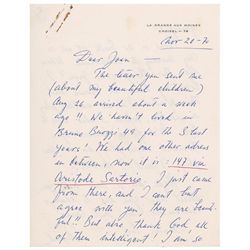 LA GRANGE AUX MOINES
CHOISEL - 78
Nov 20-7
Dear Jean —
The letter you sent me
(about my beautiful children)
Aug 26 arrived about a week
ago!! We haven't lived in
Bruno Buozzi 49 for the 3 last
years! We had one other adress
in between, now it is: 147 via
Aristide Sartorio. I just came
from there, and I can't but
agree with you, they are beauti-
ful!! But also, thank God, all
of them intelligent! I am so